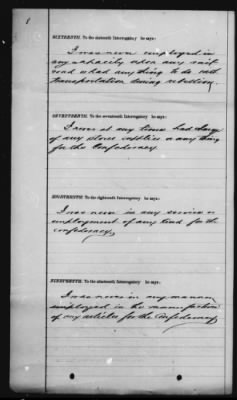 SIXTEENTH. To the sixteenth Interrogatory he says:
I was never employed in
any capacity upon any rail
road or had any thing to do with
transportation during rebellion.
SEVENTEENTH. To the seventeenth Interrogatory he says:
I never at any time had charge
of any stores supplies or any thing
for the Confederacy.
EIGHTEENTH. To the eighteenth Interrogatory he says:
I was never in any service or
employment of any kind for the
confederacy.
NINETEENTH. To the nineteenth Interrogatory he says:
I was never in any manner
employed in the manufacture
of any articles for the Confederacy